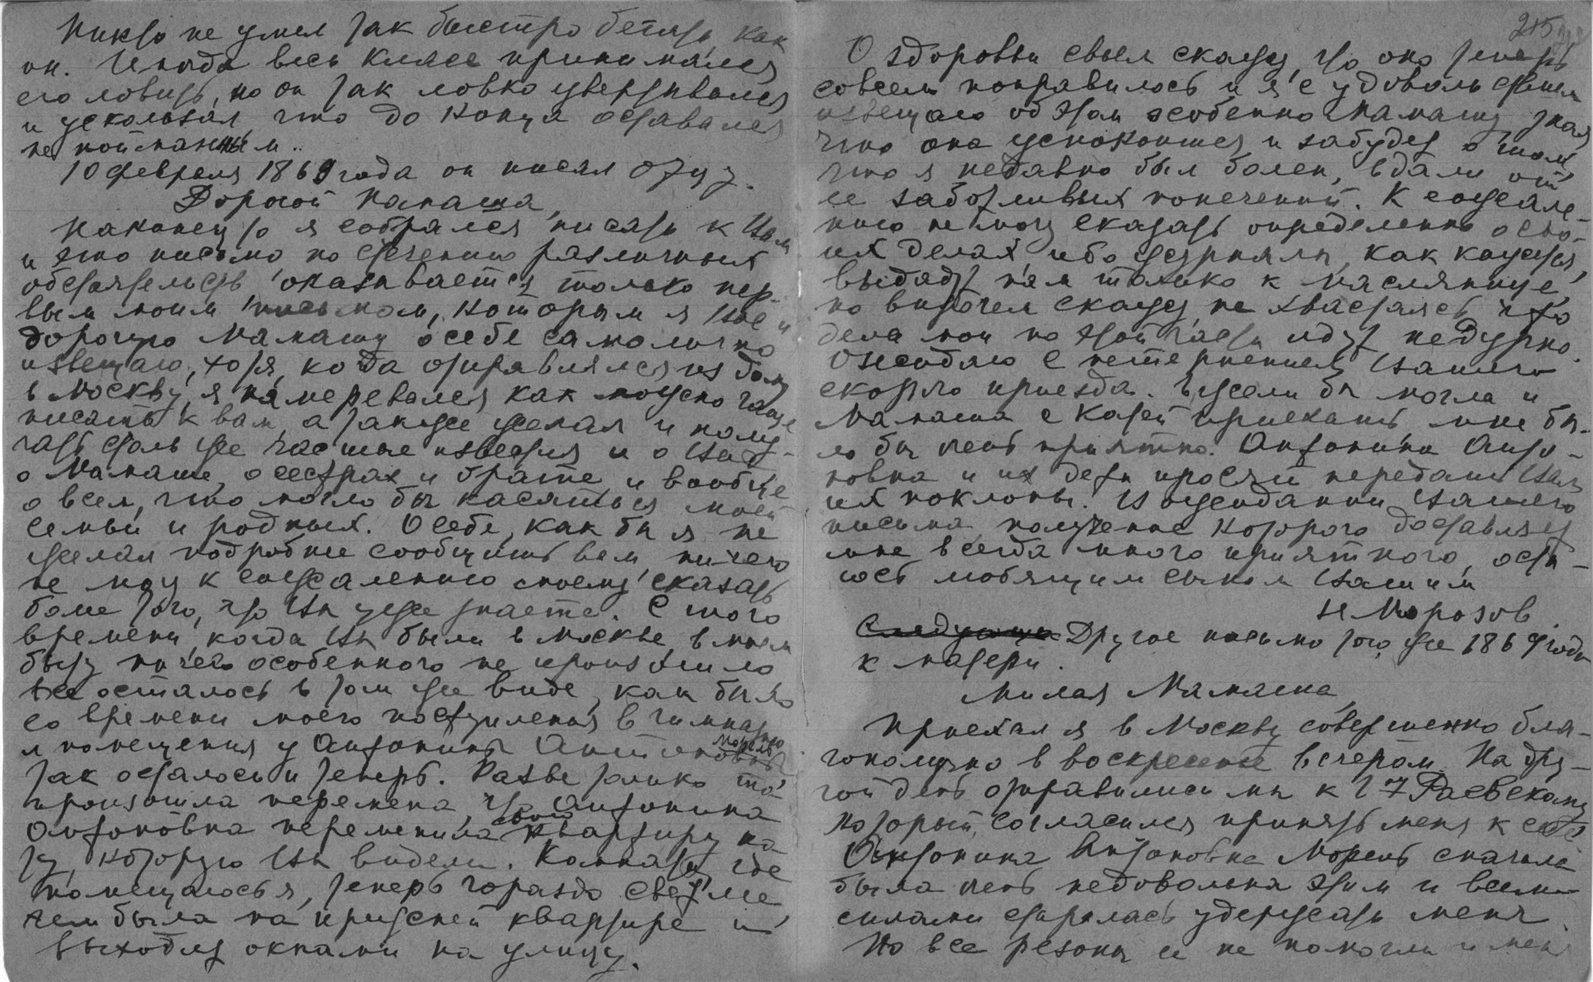 Никто не умел так быстро бегать, как
он. Иногда весь класс принимался
его ловить, но он так ловко увертывался
и ускользал что до конца оставался
не пойманным..
10 февраля 1869 года он писал отцу.
Дорогой Папаша,
Наконец то я собрался писать к Вам
и это письмо по стечению различных
обстоятельств оказывается только пер-
вым моим письмом, которым я Вас и
дорогую Мамашу о себе самолично
извещаю, хотя, когда отправлялся из дому
в Москву, я намеревался как можно чаще
писать к вам, а также желал и полу-
чать столь же частые известия и о Вас
о Мамаше, о сестрах и брате и вообще
о всем, что могло бы касаться моей
семьи и родных. О себе, как бы я не
желал подробнее сообщить вам, ничего
не могу к сожалению своему сказать
более того, что Вы уже знаете. С того
времени, когда Вы были в Москве, в моем
быту ничего особенного не произошло
все осталось в том же виде, как было
со времени моего поступления в гимназию
и помещения у Антонины Антоновны
Морель
так осталось и теперь. Разве только та
произошла перемена, что Антонина
Антоновна переменила свою квартиру на
ту, которую Вы видели. Комната, где
помещалось я, теперь гораздо светлее
чем была на прежней квартире и
выходит окнами на улицу.
215
О здоровьи своем скажу, что оно теперь
совсем поправилось и я с удовольствием
извещаю об этом особенно Мамашу, зная
что она успокоится и забудет о том,
что я недавно был болен, вдали от
ее заботливых попечений. К сожале-
нию не могу сказать определенно о сво-
их делах ибо журналы, как кажется,
выдадут нам только к масленице,
но впрочем скажу, не хвастаясь что
дела мои по этой части идут недурно.
Ожидаю с нетерпением Вашего
скорого приезда. Если бы могла и
Мамаша с Катей приехать мне бы-
ло бы очень приятно. Антонина Анто-
новна и их дети просят передать Вам
их поклоны. В ожидании Вашего
письма, получение которого доставляет
мне всегда много приятного, оста-
юсь любящим сыном Вашим
Н Морозов.
Следующее Другое письмо того же 1869 года
к матери.
Милая Мамаша,
Приехал я в Москву совершенно бла-
гополучно в воскресенье вечером. На дру-
гой день отправились мы к Г7 Раевскому
который, согласился принять меня к себе.
Антонина Антоновна Морель сначала
была очень недовольна этим и всеми
силами старалась удержать меня.
Но все резоны ее не помогли и меня